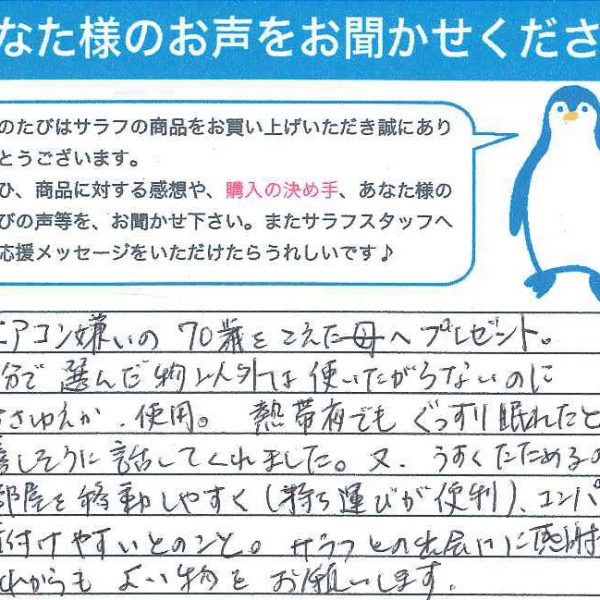 なた様のお声をお聞かせくださ
のたびはサラフの商品をお買い上げいただき誠にあり
とうございます。
ひ、商品に対する感想や、購入の決め手、あなた様の
びの声等を、お聞かせ下さい。またサラフスタッフへ
応援メッセージをいただけたらうれしいです♪
エアコン嫌いの 70歳をこえた母へプレゼント。
分で選んだ物以外は使いたがらないのに
さゆえか、使用。熱帯夜でもぐっすり眠れたと
しそうに話してくれました。又、うすくたためるの
部屋を移動しやすく(持ち運びが便利)、コンパ
付けやすいとのこと。サラフとの出会いに感謝
れからもよい物をお願いします。